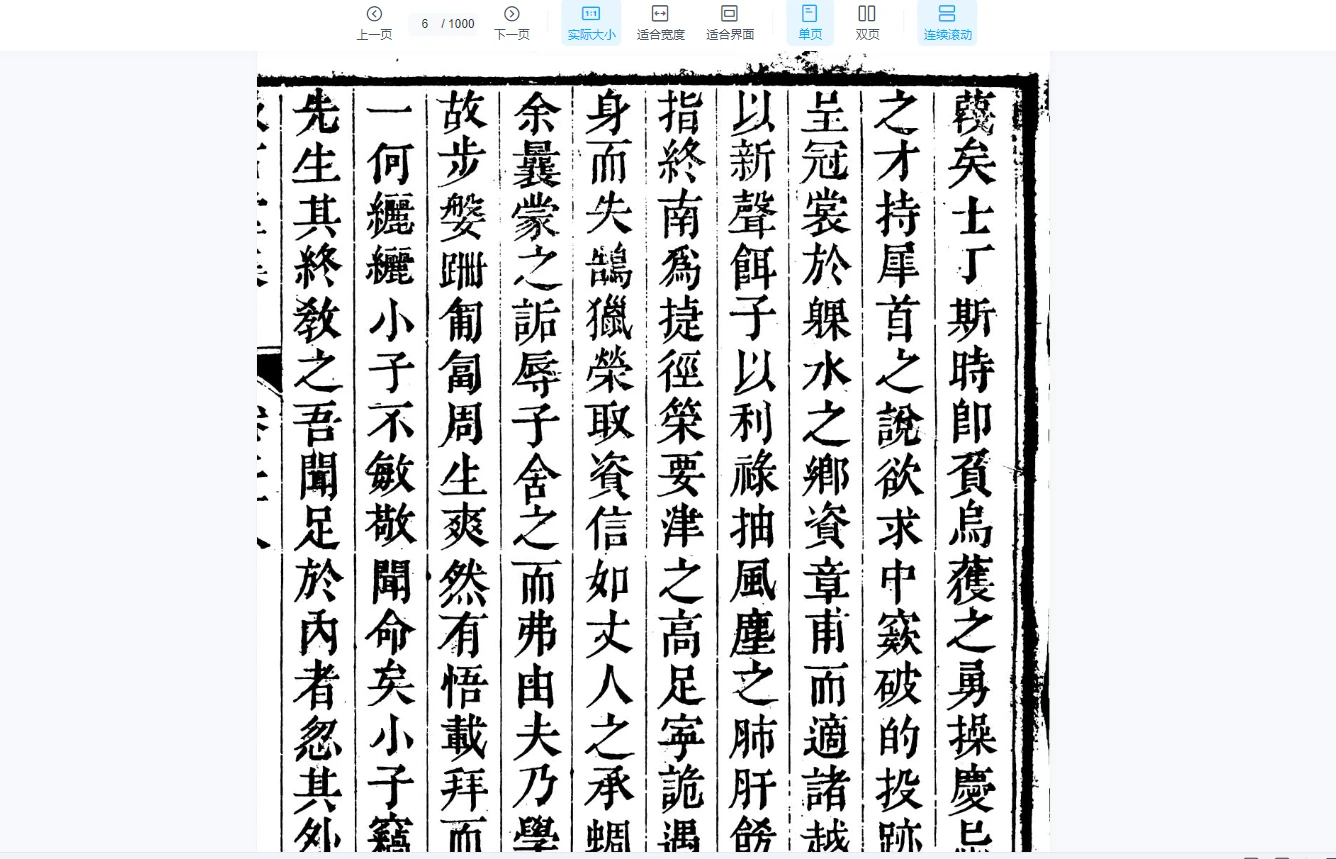 上一页
6 / 1000
下一页
实际大小
适合宽度
适合界面
单页
双页
连续滚动
蓺矣士丁斯時卽負烏蒦之勇操慶忌
之才持犀首之說欲求中窾破的投跡
呈冠裳於躶水之鄉資章甫而適諸越
以新聲餌子以利祿抽風塵之肺肝
指終南爲捷徑榮要津之高足寜詭遇
身而失鵠獵榮取資信如丈人之承蜩
余曩蒙之詬辱子舍之而弗由夫乃學
故步媻跚匍匐周生爽然有悟載拜而
一何纚纚小子不敏敬聞命矣小子竊
先生其終敎之吾聞足於內者忽其外